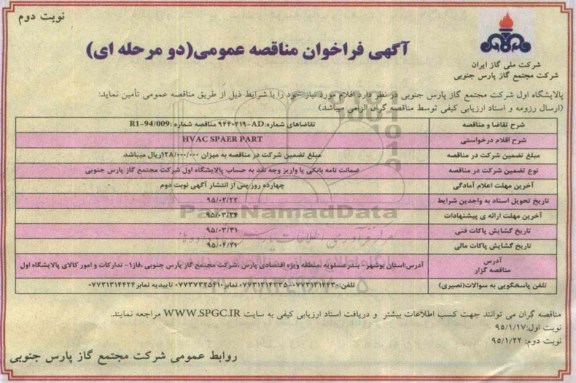 نوبت دوم
آگهی فراخوان مناقصه عمومی(دو مرحله ای)
شرکت ملی گاز ایران
شرکت مجتمع گاز پارس جنوبی
پالایشگاه اول شرکت مجتمع گاز پارس جنوبی در نظر دارد اقلام مورد نیاز خود را با شرایط ذیل از طریق مناقصه عمومی تأمین نماید:
(ارسال رزومه و اسناد ارزیابی کیفی توسط مناقصه گران الزامی میباشد)
شرح تقاضا و مناقصه تقاضاهای شماره:9440219-AD مناقصه شماره:R1-94/009
شرح اقلام درخواستی HVAC SPAER PART
مبلغ تضمین شرکت در مناقصه مبلغ تضمین شرکت در مناقصه به میزان ۱۲۸/۰۰۰/۰۰۰ریال میباشد
نوع تضمین شرکت در مناقصه ضمانت نامه بانکی یا واریز وجه نقد به حساب پالایشگاه اول شرکت مجتمع گاز پارس جنوبی
آخرین مهلت اعلام آمادگی چهارده روز پس از انتشار آگهی نوبت دوم
تاریخ تحویل اسناد به واجدین شرایط ۹۵/۰۲/۲۲
آخرین مهلت ارائه ی پیشنهادات ۹۵/۰۳/۲۴
تاریخ گشایش پاکات فنی ۹۵/۰۳/۳۱
تاریخ گشایش پاکات مالی
آدرس مناقصه گزار آدرس:استان بوشهر- بندرعسلویه -منطقه ویژه اقتصادی پارس -شرکت مجتمع گاز پارس جنوبی -فاز۱ - تدارکات و امور کالای پالایشگاه اول
تلفن پاسخگویی به سوالات(نصیری) تلفن: نمابر تاییدیه نمابر
مناقصه گران می توانند جهت کسب اطلاعات بیشتر و دریافت اسناد ارزیابی کیفی به سایت WWW.SPGC.IR مراجعه نمایند.
نوبت اول:۹۵/۱/۱۷
نوبت دوم: ۹۵/۱/۲۲
روابط عمومی شرکت مجتمع گاز پارس جنوبی
ParsNamadData